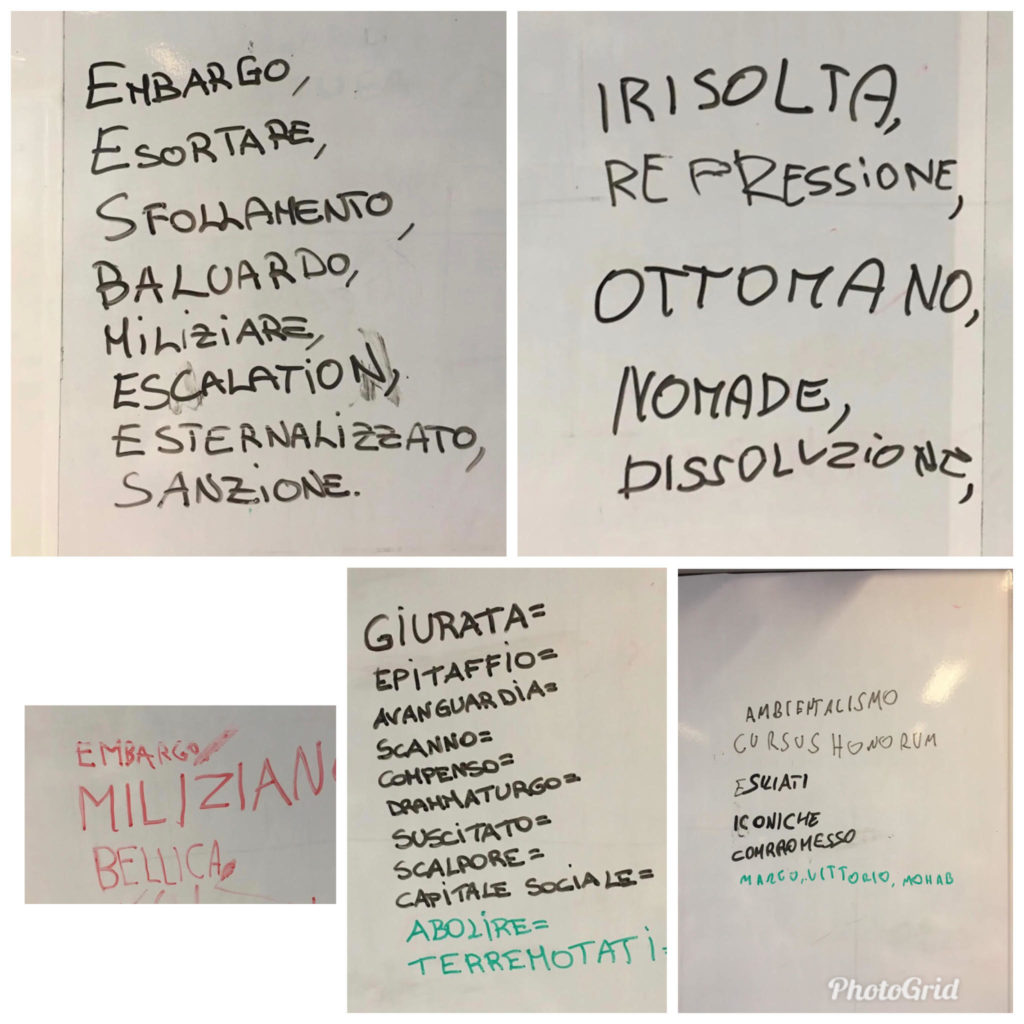 EMBARGO,
ESORTARE,
SFOLLAMENTO,
BALUARDO,
MILIZIARE,
ESCALATION,
ESTERNALIZZATO,
SANZIONE.
IRISOLTA,
REPRESSIONE,
OTTOMANO,
NOMADE,
DISSOLUZIONE,
EMBARGO
MILIZIAN
BELLICA
GIURATA=
EPITAFFIO=
AVANGUARDIA=
SCANNO=
COMPENSO=
DRAMMATURGO=
SUSCITATO=
SCALPORE=
CAPITALE SOCIALE=
ABOLIRE=
TERREMOTATI=
AMBIENTALISMO
CURSUS HONORUM
ICONICHE
COMPROMESSO
MARCO, VITTORIO, MOHAB
PhotoGrid